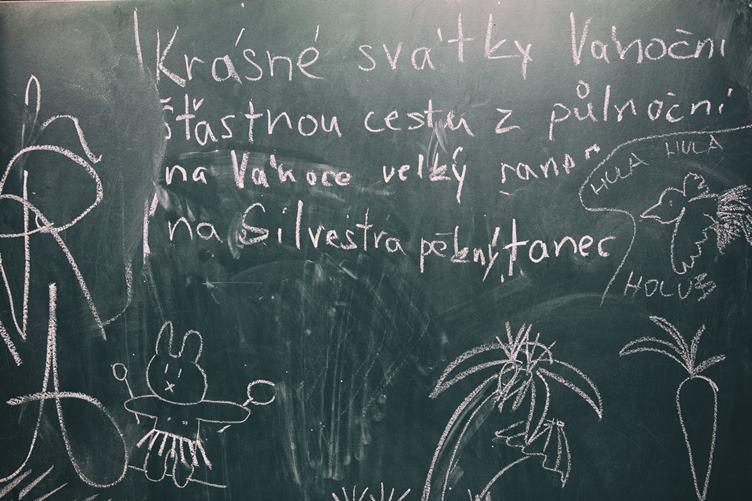 Krásné svátky Vánoční
šťastnou cestu z půlnoční
na Vánoce velký
na Silvestra pěkný tanec
HULA HULA
HOLUB